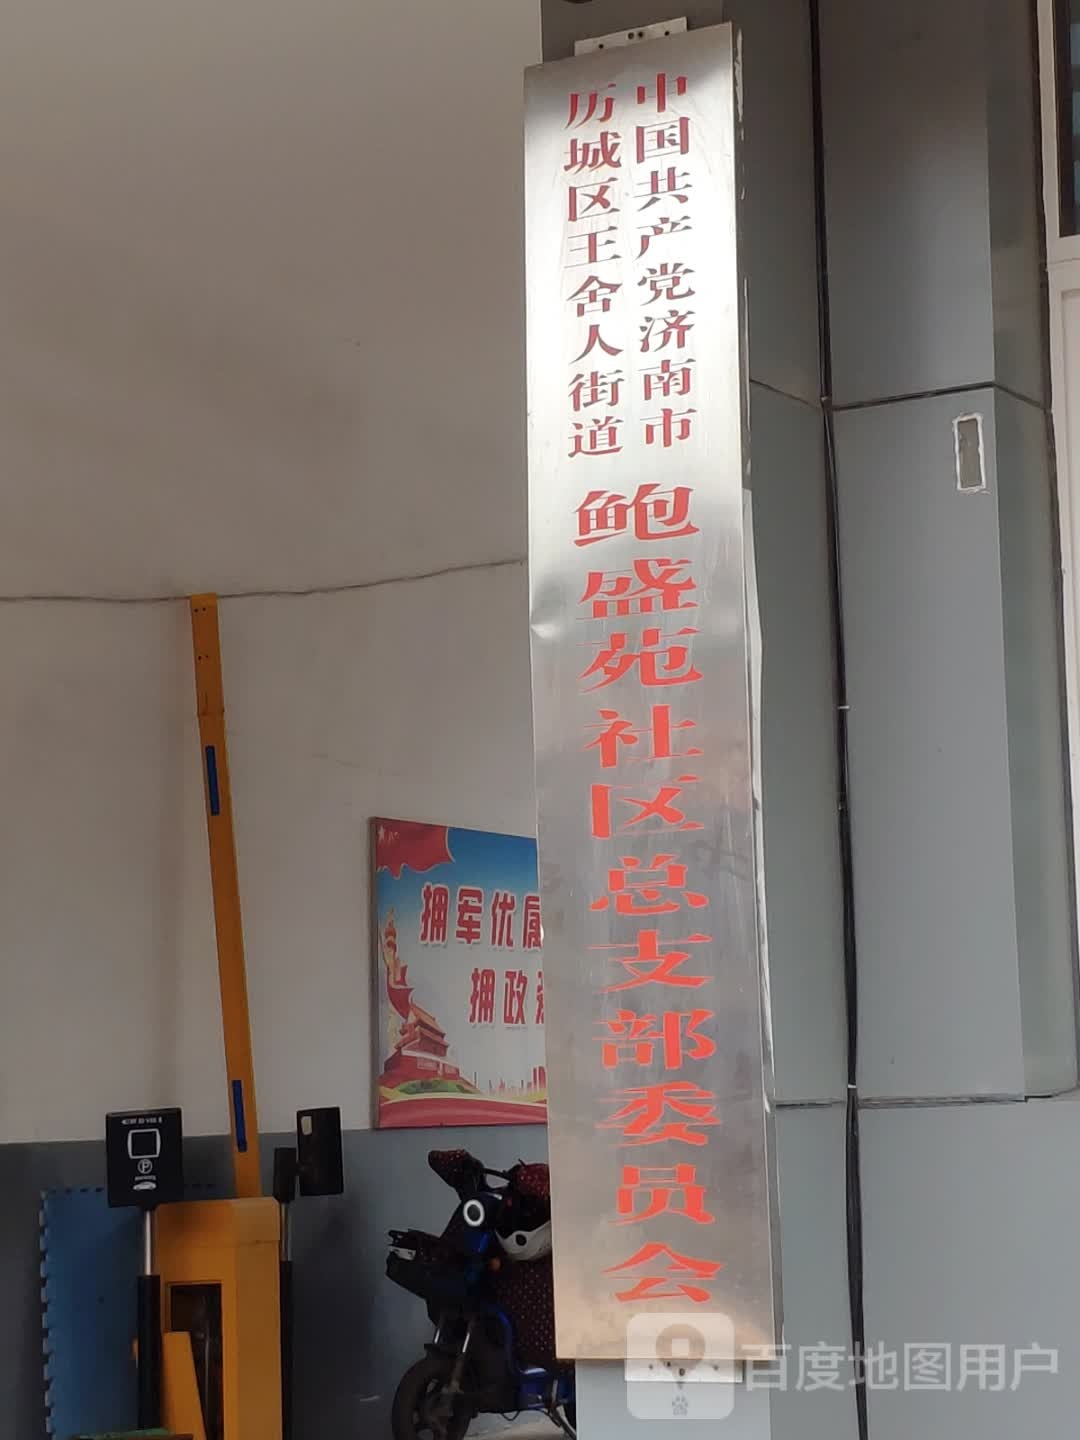 中国共产党济南市
历城区王舍人街道
鲍盛苑社区总支部委员会
拥军优属
拥政
百度地图用户